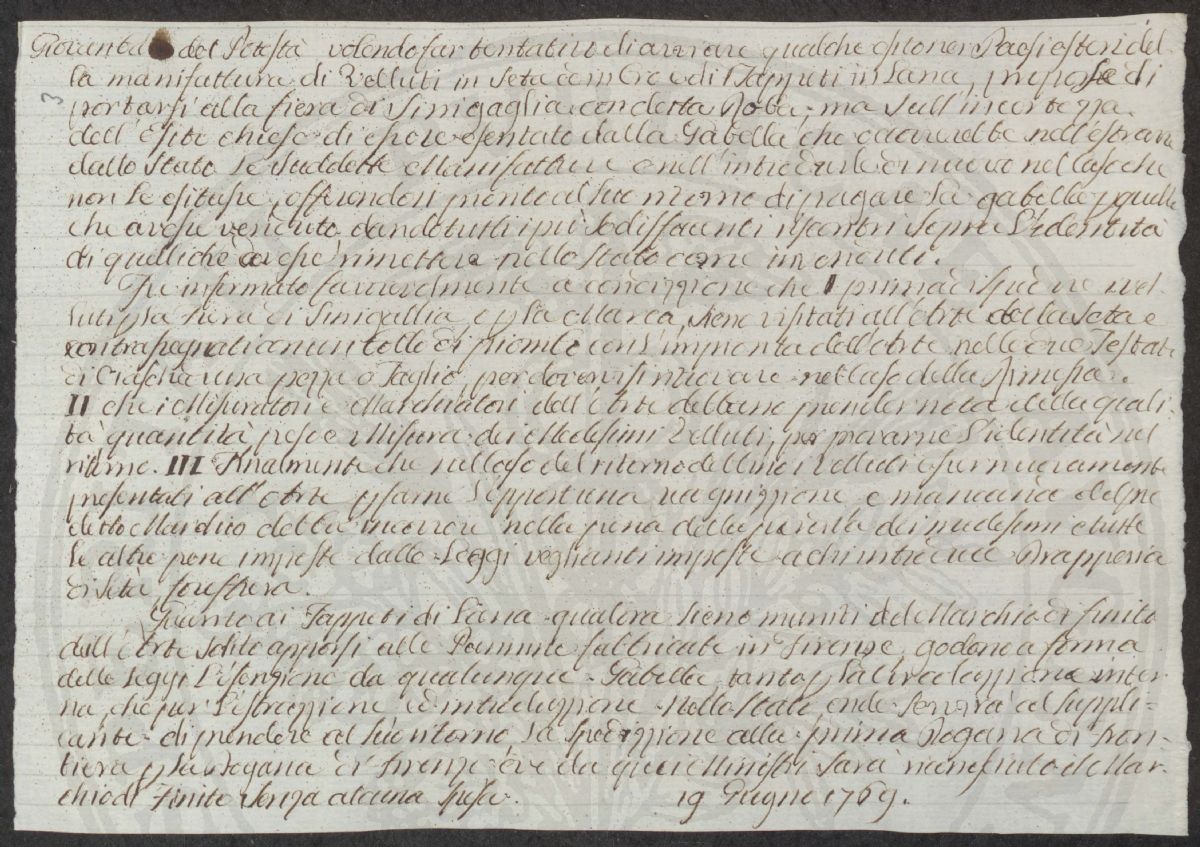 Giovanba del Potestà volendo far tentativo di avviare qualche esito ne Paesi esteri del-
la manifattura di Velluti in Seta con Oro e di Tappeti in Lana, propose di
portarsi alla fiera di Sinigaglia con detta Roba, ma sull'incertezza
dell'Esito chiese di essere esentato dalla Gabella che occorrerebbe nell'estrarre
dallo Stato le suddette Manifatture e nell'introdurle di nuovo nel Caso che
non le esitasse, offerendosi pronto al suo ritorno di pagare la gabella p quelle
che avesse venduto dando tutti i più sodisfacenti riscontri sopra l'identità
di quelli che dovesse rimettere nello Stato come invenduti.
Fu informato favorevolmente a condizzione che I prima di spedire i Vel-
luti p la Fiera di Sinigallia, e p la Marca, sieno visitati all'Arte della Seta e
contrasegnati con un bollo di piombo con l'impronta dell'Arte nelle due Testate
di Ciascheduna pezza o Taglio, per dovervisi ritrovare nel Caso della Rimessa.
II che i Misuratori e Marchiatori dell'Arte debbano prender nota della quali-
tà quantità peso e Misura dei Medesimi Velluti, per provarne l'identità nel
ritorno. III Finalmente che nel Caso del ritorno debbino i Velluti esser nuovamente
presentati all'Arte p farne l'opportuna ricognizzione, e mancando del pre
detto Marchio debba incorrere nella pena della perdita dei medesimi e tutte
le altre pene imposte dalle Leggi veglianti imposte a chi introduce Drapperia
di Seta forestiera.
Quanto ai Tappeti di Lana qualora sieno muniti del Marchio di finito
dall'Arte solito apporsi alle Pannine fabbricate in Firenze, godono a forma
delle Leggi l'esenzione da qualunque Gabella tanto p la Circolazzione inter-
na, che per l'estrazzione ed introduzzione nello Stato onde servirà al Suppli-
cante di prendere al suo ritorno la spedizzione alla prima Dogana di fron-
tiera p la Dogana di Firenze ove da quei Ministri sarà riconosciuto il Mar-
chio di Finito senza alcuna spesa. 19 Giugno 1769.
3